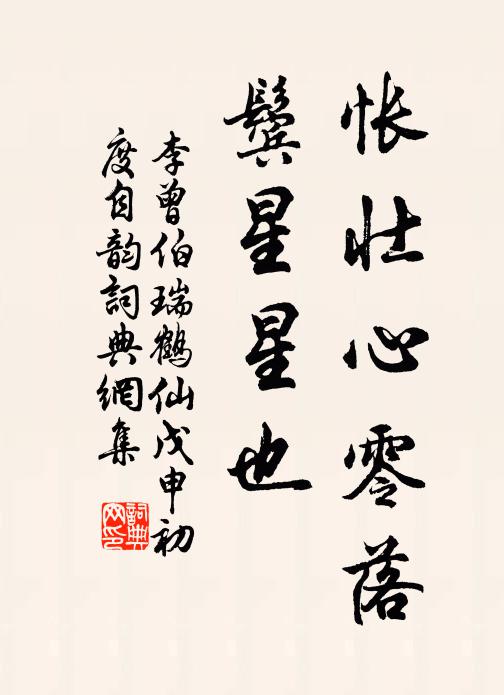 怅壮心零落
鬓星星也
李曾伯瑞鶴仙戊申初
度自韵詞典網集
詞典
网印